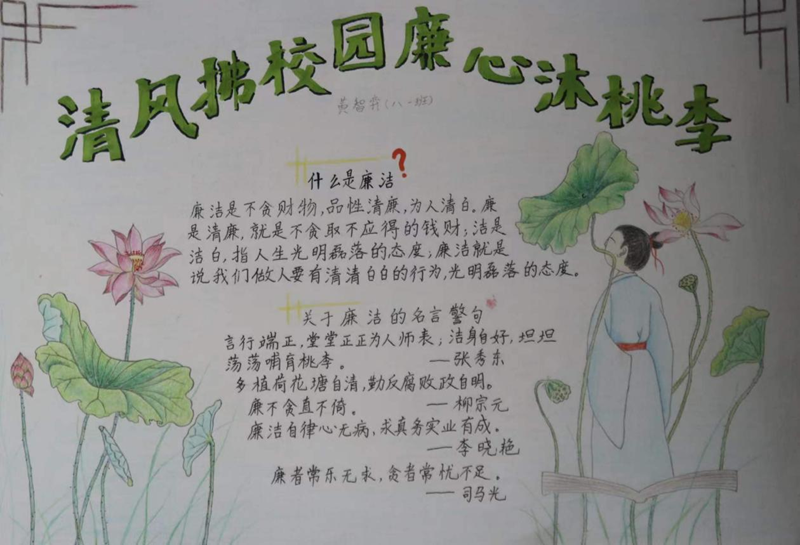 清风拂校园廉心沐桃李
黄智(八一班)
什么是廉洁?
廉洁是不贪财物,品性清廉,为人清白。廉
是清廉,就是不贪取不应得的钱财;洁是
洁白,指人生光明磊落的态度;廉洁就是
说我们做人要有清清白白的行为,光明磊落的态度。
关于廉洁的名言警句
言行端正,堂堂正正为人师表;洁身自好,坦坦
荡荡哺育桃李。 ——张秀东
多植荷花塘自清,勤反腐败政自明。
廉不贪直不倚。 ——柳宗元
廉洁自律心无病,求真务实业有成。
——李晓艳
廉者常乐无求,贪者常忧不足。
——司马光